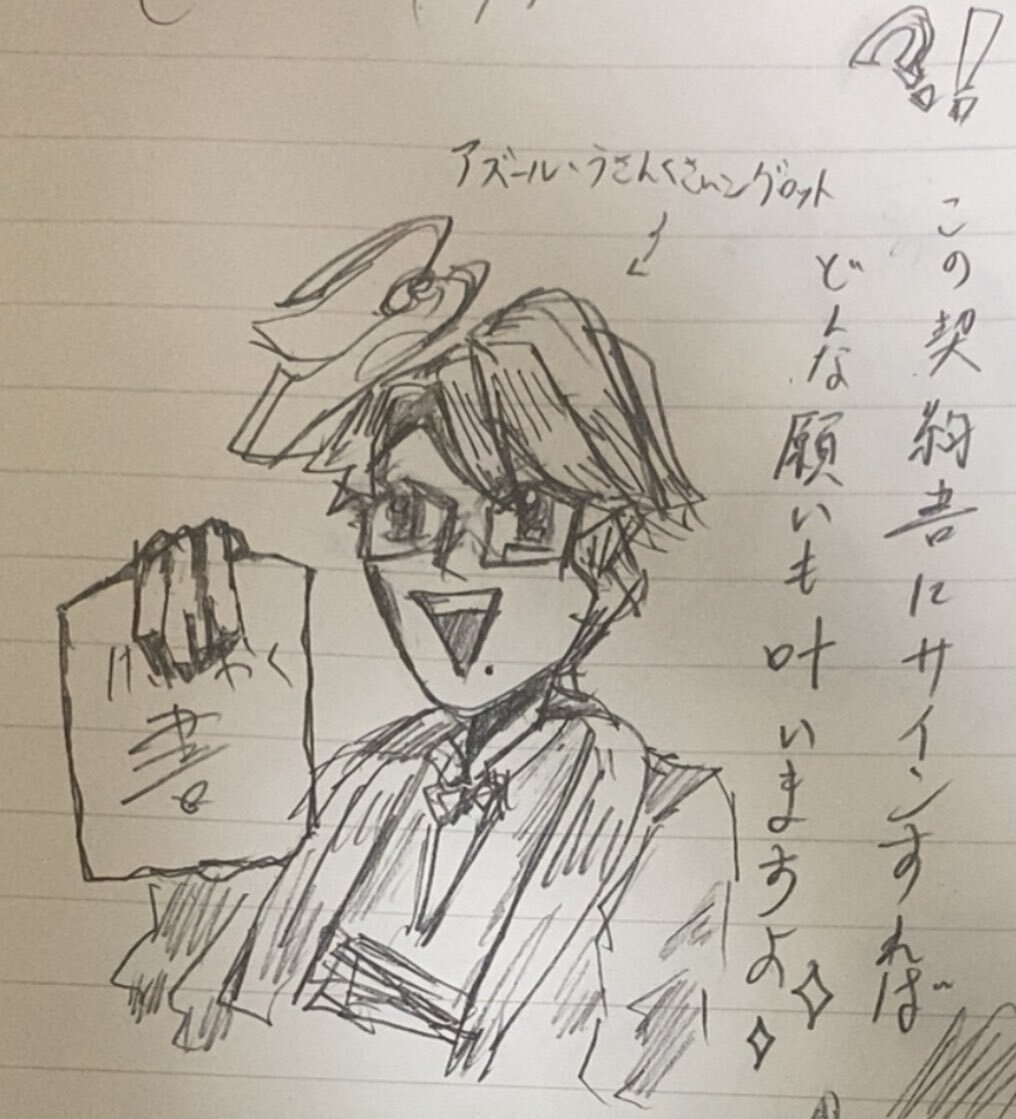 ?!
アズール・うさんくさいングロット
この契約書にサインすれば
どんな願いも叶いますよ
けいやく
書